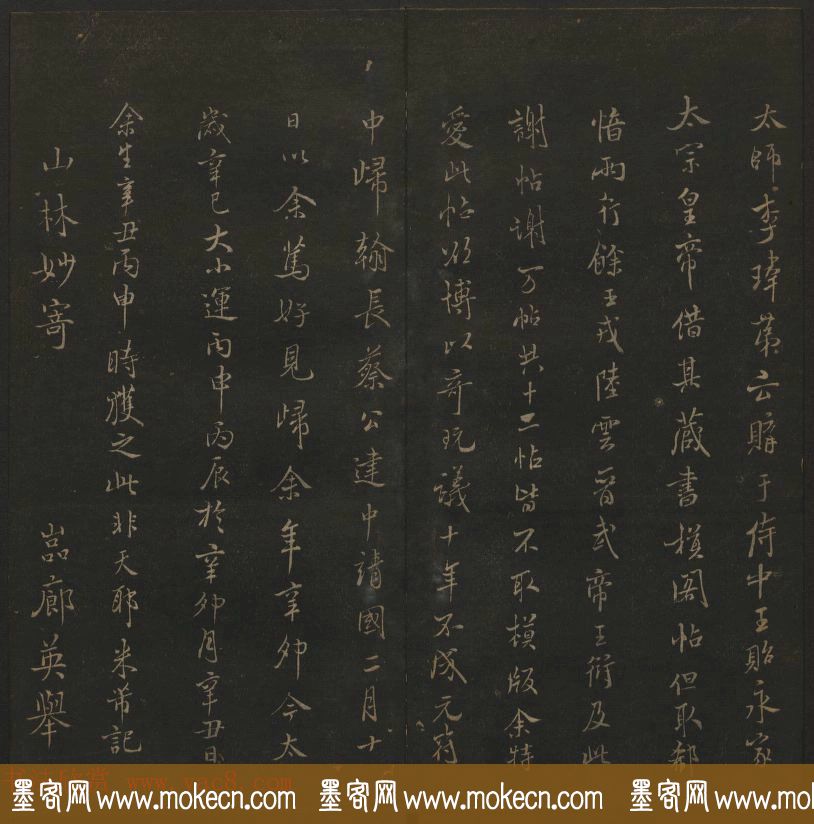 太師李瑋第云購于侍中王貽永家
太宗皇帝借其藏書模閣帖但取郗
愔兩行餘王戎陸雲晉武帝王衍及此
謝帖謝万帖共十二帖皆不取模版余特
愛此帖欲博以奇玩議十年不成元符
中歸翰長蔡公建中靖國二月十
日以余篤好見歸余年辛卯今太
歲辛巳大小運丙申丙辰於辛卯月辛丑日
余生辛丑丙申時獲之此非天耶米芾記
山林妙寄
嵓廊英舉
墨客网 www.mokecn.com 墨客网 www.mokecn.com 墨客网 www.mokecn.com